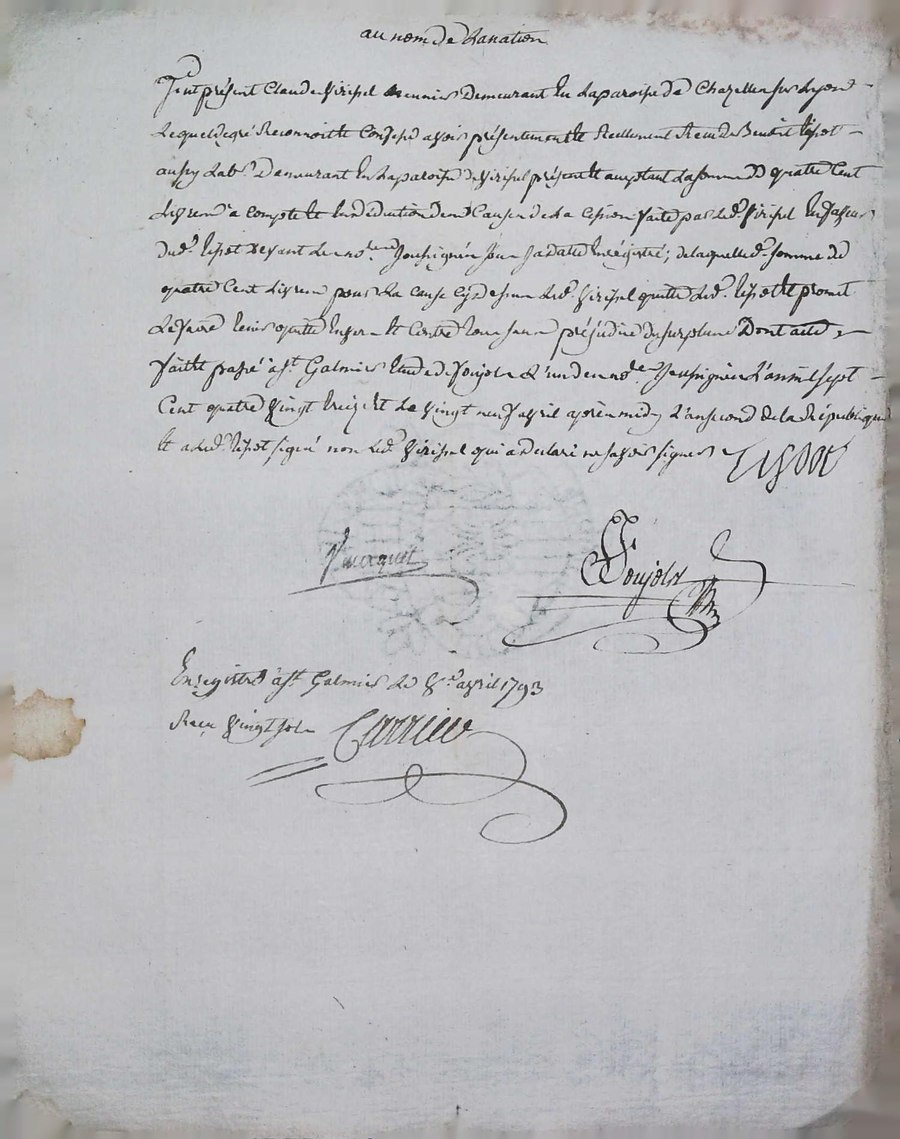 au nom de la nation
fut présent Claude Viricel meunier Demeurant En la paroisse de Chazelles sur Lyon
Lequel de gré Reconnoit et Confesse avoir présentement et Reellement Recu de Benoit Tisot
aussy Lab.r Demeurant En la paroisse de Viricel présent et acceptant La somme de quatre Cent
Livres a compte et En deduction des Causes de la Cession faite par led.t Viricel En faveur
dud.t Tisot devant Les no.res soussignés jour Enregistré; de laquelle d.te somme de
quatre Cent Livres pour La cause Cy dessus led.t Viricel quitte led.t Tisot et promet
Le faire tenir quitte Envers Et Contre tous sans préjudice du surplus Dont acte
fait et passé à St. Galmier Etude de Poujols L'un des no.res soussignés L'an mil sept
Cent quatre Vingt treize et Le Vingt neuf avril après midy L'an second de la République
Et a led.t Tisot signé non led.t Viricel qui a declaré ne savoir signer Tisot
Poujols
Enregistré à St. Galmier Le avril 1793
Recu Vingt sols Carrier